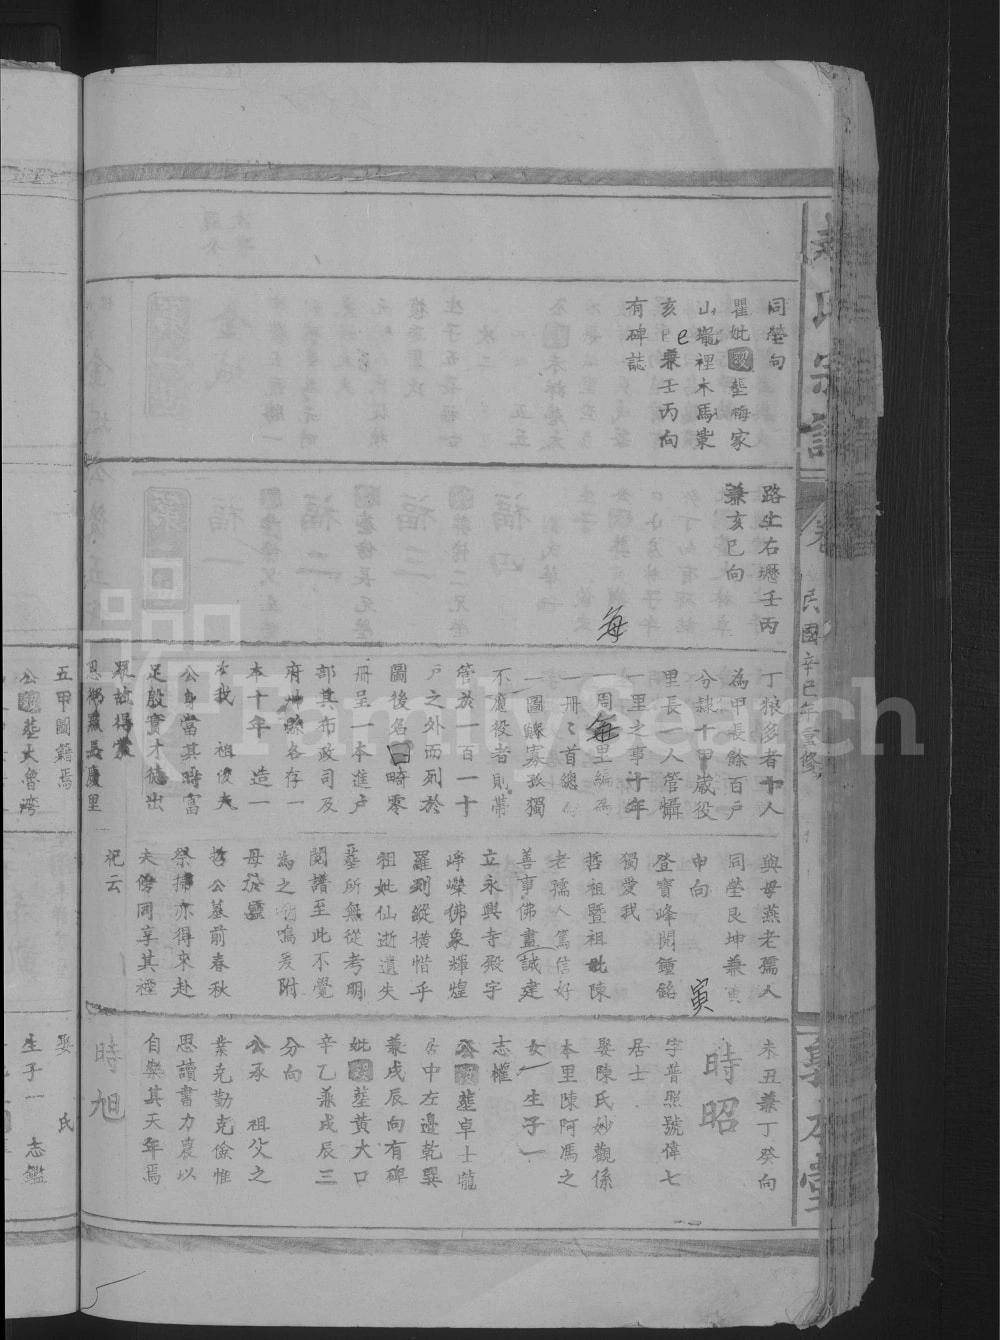 同塋句
瞿妣墓梅家
山壠裡木馬業
亥巳兼壬丙向
有碑誌
路生右壢壬丙
兼亥巳向
丁狼多者十人
為甲長餘百戶
分隸十甲歲役
里長一人管懾
一里之事十年
一周每里編為
一冊冊首總為
一圖鰥寡孤獨
不應役者則帶
管於一百一十
戶之外而列於
圖後名曰畸零
冊呈一本進戶
部其布政司及
府州縣各存一
本十年造一
次我 祖俊夫
公身當其時富
足殷實才德出
眾故得蒙
恩都里長慶里
五甲圖籍焉
公墓大魯湾
每
與母燕老孺人
同塋艮坤兼寅
申向
登寶峰閱鍾銘
獨愛我
哲祖暨祖妣陳
老孺人篤信好
善事佛盡誠建
立永興寺殿宇
崢嶸佛象輝煌
羅列縱橫惜乎
祖妣仙逝遺失
墓所無從考明
閱譜至此不覺
為之嗚爰附
母於靈
哲公墓前春秋
祭掃亦得來赴
夫傍同享其禋
祀云
寅
未丑兼丁癸向
時昭
字普照號偉七
居士
娶陳氏妙觀係
本里陳阿馮之
女一生子一
志權
公墓卓士壠
居中左邊乾巽
兼戌辰向有碑
妣墓黃大口
辛乙兼戌辰三
分向
公承 祖父之
業克勤克儉惟
思讀書力農以
自樂其天年焉
時旭
娶 氏
生子一 志鑑
氏宗譜
卷
民國辛巳年重修
本堂
FamilySearch